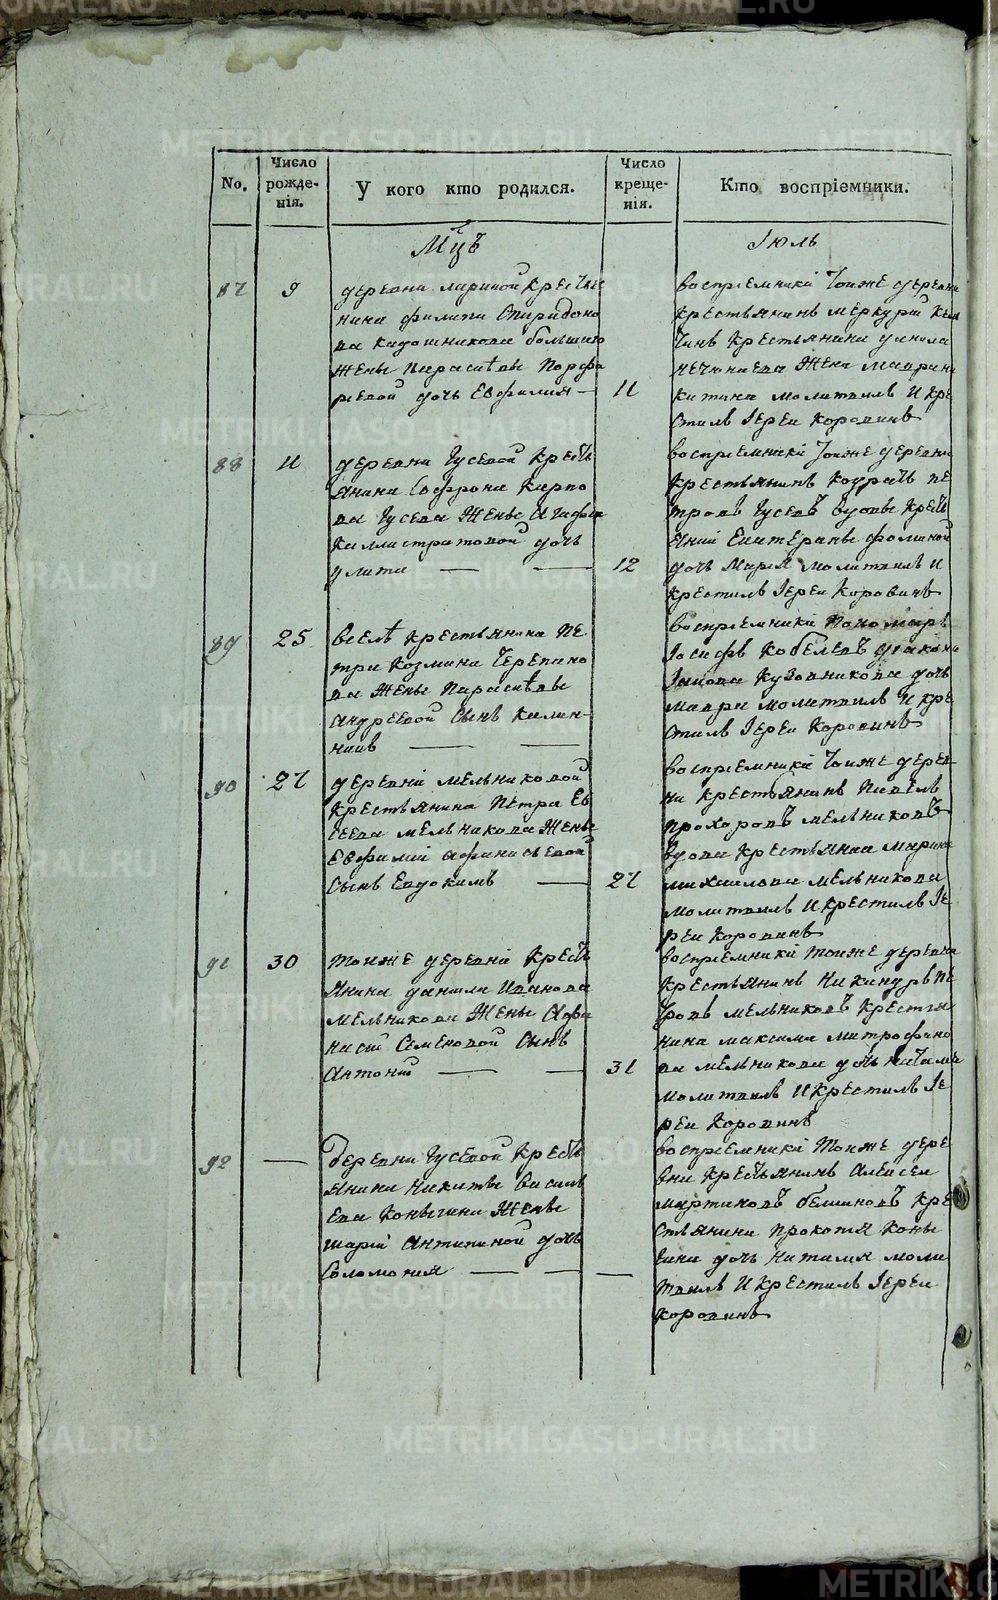 No.
Число рожде- нія.
У кого кто родился.
Число креще- нія.
Кто воспріемники.
Мцъ
Іюль
87
9
деревни лариной крестья
нина филипа Спиридоно
ва кадошникова большаго
жены парасковьи порфи
рьевой дочь Евфимия
11
воспріемники тоиже деревни
крестьянинъ меркурій
крестьянина данила
жена
молитвилъ и кре
стилъ Іереи коровинъ
88
11
деревни гусевой кресть
янина Софрона карпо
ва гусева жены агафьи
каллистратовой дочь
улита
12
воспріемники тоиже деревни
крестьянинъ кодратъ пе
тровъ гусевъ вдовы кресть
Екатерины фоминой
дочь Марья молитвилъ и
крестилъ Іереи коровинъ
89
25
вселѣ крестьянина пе
тра козмина черепано
ва жены парасковьи
андреевой сынъ калин
никъ
воспріемники пономарь
Іосифъ кобелевъ диакона
Іакова кузовникова дочь
мавра молитвилъ и кре
стилъ Іереи коровинъ
90
27
деревни мельниковой
крестьянина петра Ев
сеева мельникова жены
Евфиміи афанасьевой
сынъ Евдокимъ
27
воспріемники тоиже дерев
ни крестьянинъ павелъ
прохоровъ мельниковъ
вдова крестьянка марина
михаилова мельникова
молитвилъ и крестилъ Іе
реи коровинъ
91
30
тоиже деревни кресть
янина данила иванова
мельникова жены афа
насіи семеновой сынъ
антоній
31
воспріемники тоиже деревни
крестьянинъ никандръ пе
тровъ мельниковъ крестья
нина максима митрофано
ва мельникова дочь наталья
молитвилъ и крестилъ Іе
реи коровинъ
92
деревни гусевой кресть
янина никиты василь
ева конышина жены
маріи антипиной дочь
соломония
воспріемники тоиже дере
вни крестьянинъ алексеи
мартиновъ кре
стьянина прокопья коны
шина дочь наталия моли
твилъ и крестилъ Іереи
коровинъ
METRIKI.GASO-URAL.RU